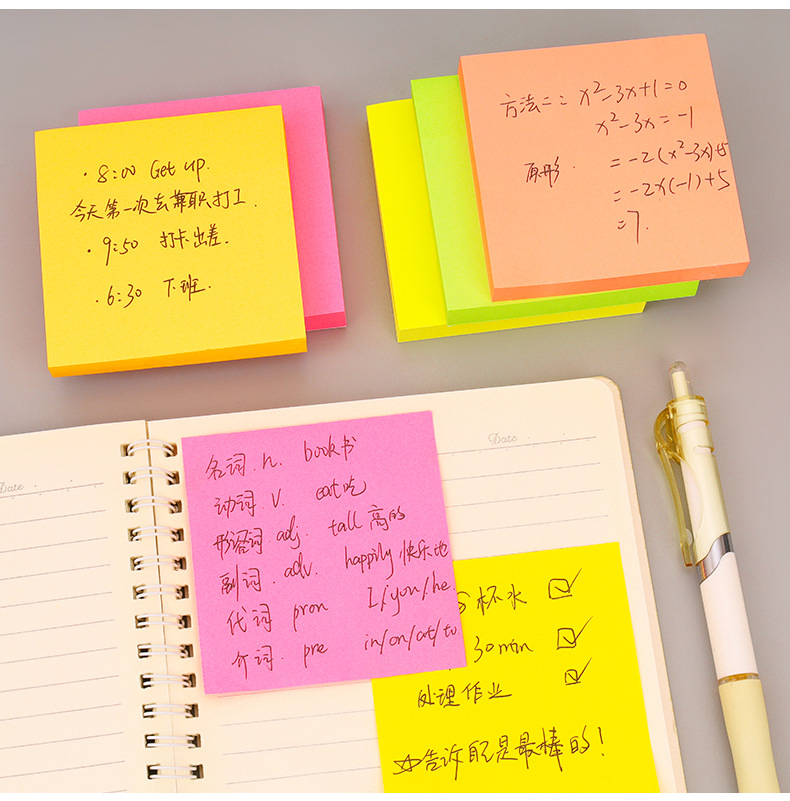 · 8:00 Get up.
今天第一次去兼职打工
· 9:50 打卡出差.
· 6:30 下班.
方法二: x²-3x+1=0
x²-3x=-1
原形. =-2(x²-3x)+5
=-2×(-1)+5
=7.
Date
Date
名词.n. book书
动词.v. eat吃
形容词.adj. tall高的
副词.adv. happily快乐地
代词 pron I/you/he
介词. pre in/on/at/to.
杯水
30min
处理作业
告诉自己是最棒的!